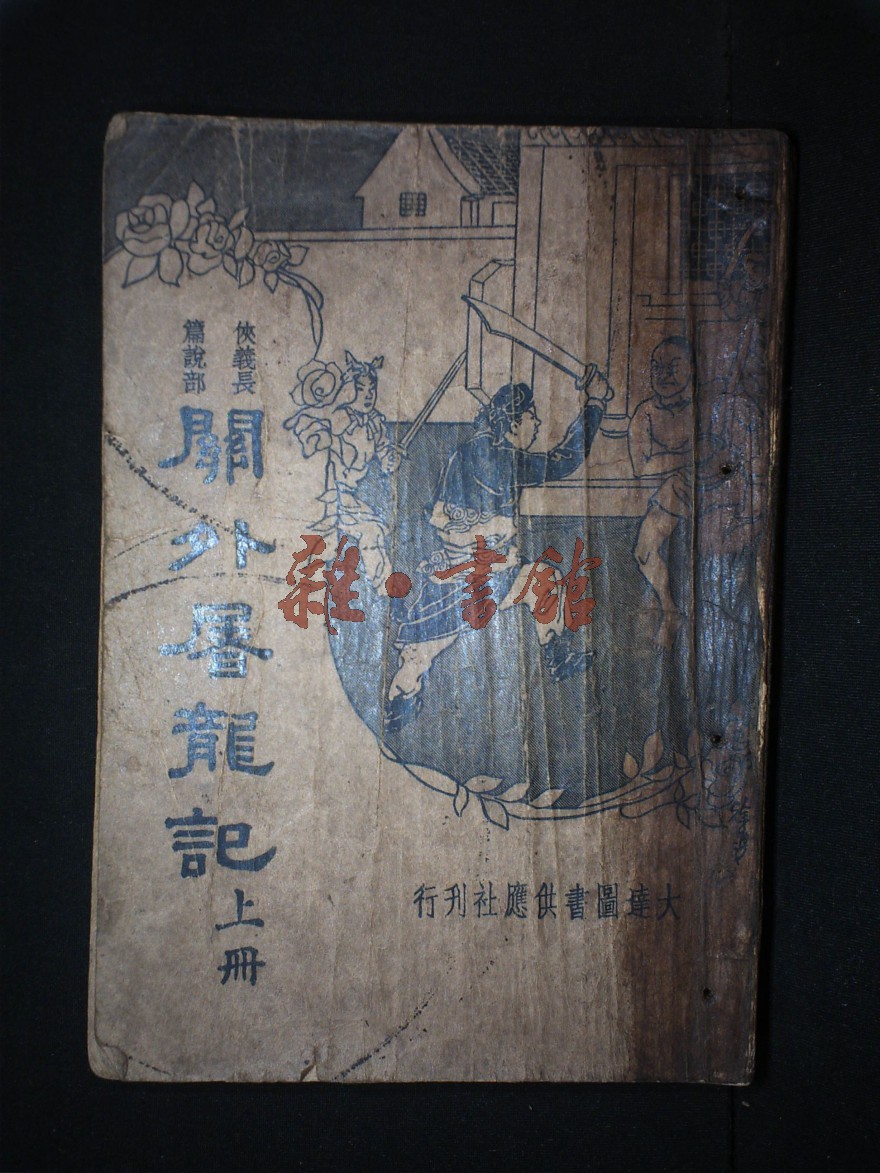 俠義長
篇說部
關外屠龍記
上冊
雜·書館
大達圖書供應社刊行